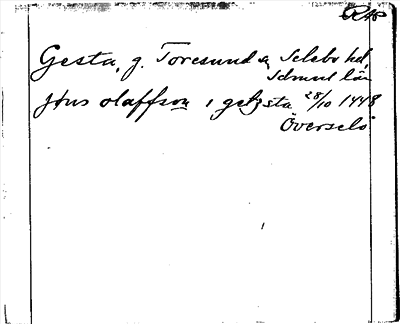 Gesta, g. Toresund o Selebo hd,
Sdmnl län
jöns olaffson i getzsta 28/10 1448
Överselö